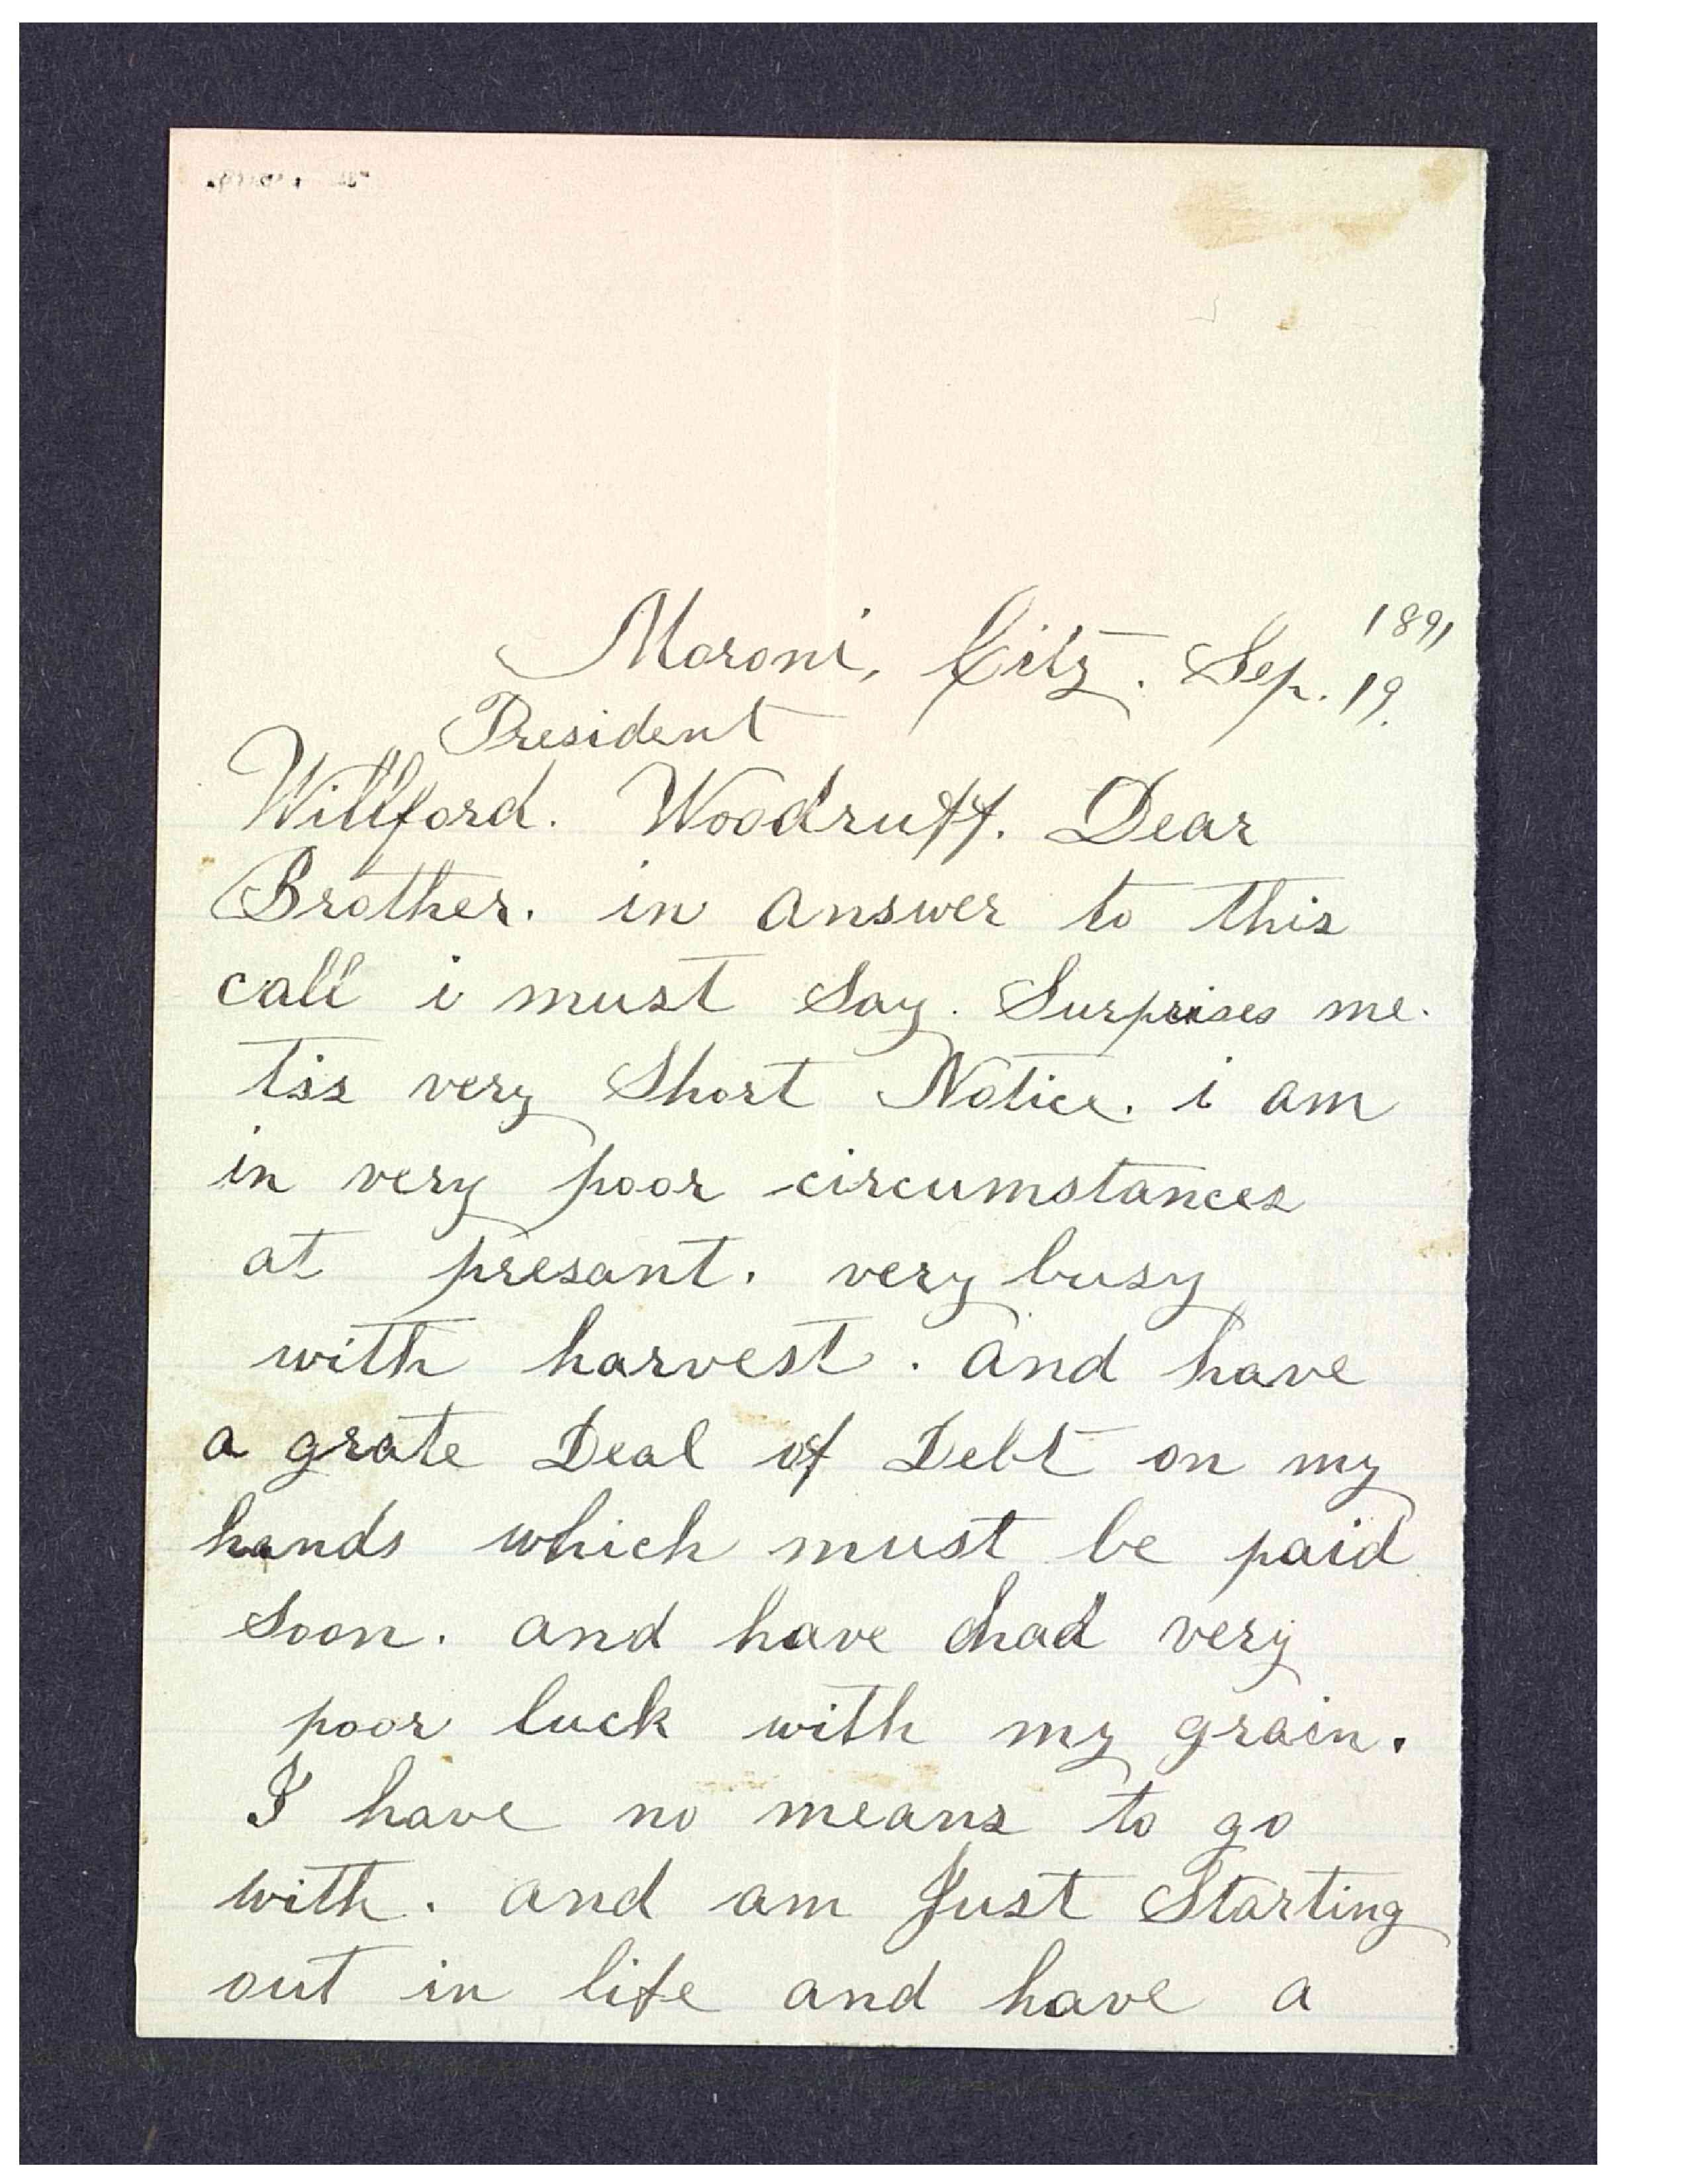 1891
Moroni, City. Sep. 19.
President
Willford. Woodruff. Dear
Brother. in answer to this
call i must Say. Surprises me.
tis very Short Notice. i am
in very poor circumstances
at presant. very busy
with harvest. and have
a grate Deal of Debt on my
hands which must be paid
Soon. and have had very
poor luck with my grain.
I have no means to go
with. and am Just Starting
out in life and have a